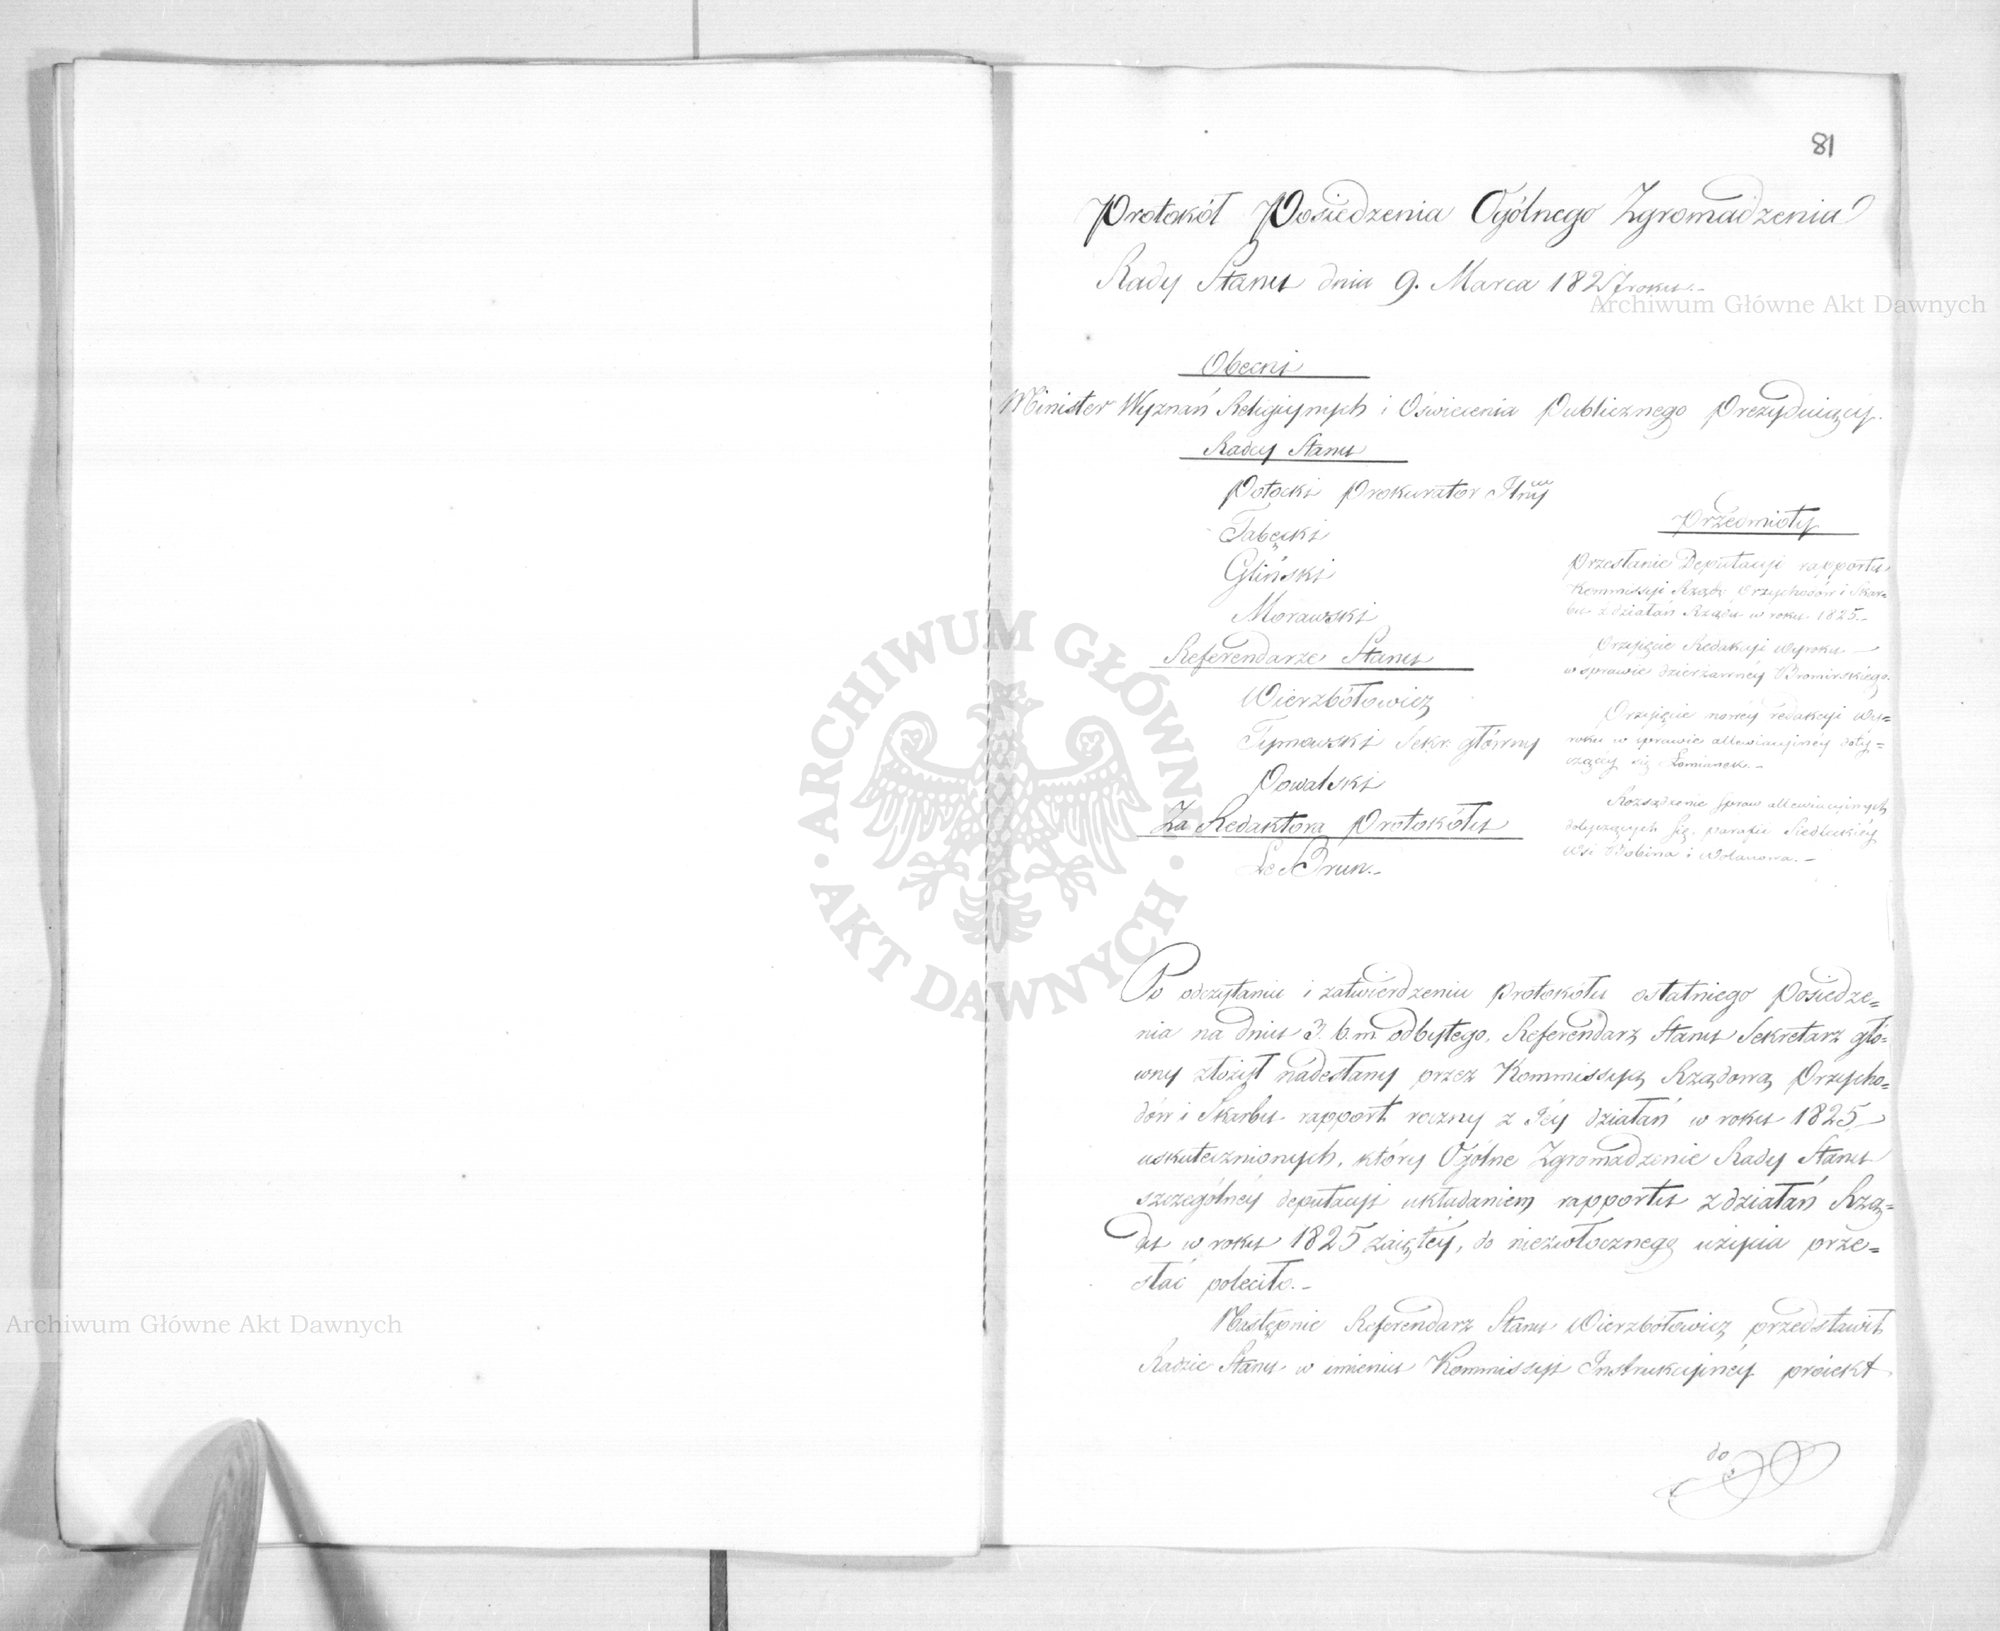 81
Protokół Posiedzenia Ogólnego Zgromadzenia
Rady Stanu dnia 9. Marca 1827 roku.-
Archiwum Główne Akt Dawnych
Obecni
Minister Wyznań Religiynych i Oświecenia Publicznego Prezyduiący.
Radcy Stanu
Potocki Prokurator
Tabęcki
Gliński
Morawski
Referendarze Stanu
Wierzbołowicz
Tymowski Sekr. główny
Powalski
Za Redaktora Protokółu
Le Brun.-
Przedmioty
Przesłanie Deputacyi rapportu
Kommissyi Rządź Przychodów i Skar=
bu z działań Rządu w roku 1825.-
Przyięcie Redakcyi wyroku -
w sprawie dzierżawnéy Bromirskiego.
Przyięcie nowéy redakcyi wy=
roku w sprawie allewiacyinéy doty=
czącéy się Łomianek.-
Rozsądzenie spraw allewiacyinych
dotyczących się parafii Siedleckiéy
Wsi Bobina i Wolanowa.-
ARCHIWUM GŁÓWNE
AKT DAWNYCH
Po odczytaniu i zatwierdzeniu Protokółu ostatniego Posiedze=
nia na dniu 3. b.m. odbytego, Referendarz Stanu Sekretarz głó=
wny złożył nadesłany przez Kommissyą Rządową Przycho=
dów i Skarbu rapport roczny z Iéy działań w roku 1825
uskutecznionych, który Ogólne Zgromadzenie Rady Stanu
szczególnéy deputacyi układaniem rapportu z działań Rzą=
du w roku 1825 zaiętéy, do niezwłocznego użycia prze=
słać poleciło.-
Następnie Referendarz Stanu Wierzbołowicz przedstawił
Radzie Stanu w imieniu Kommissyi Instrukcyinéy proiekt
do
Archiwum Główne Akt Dawnych